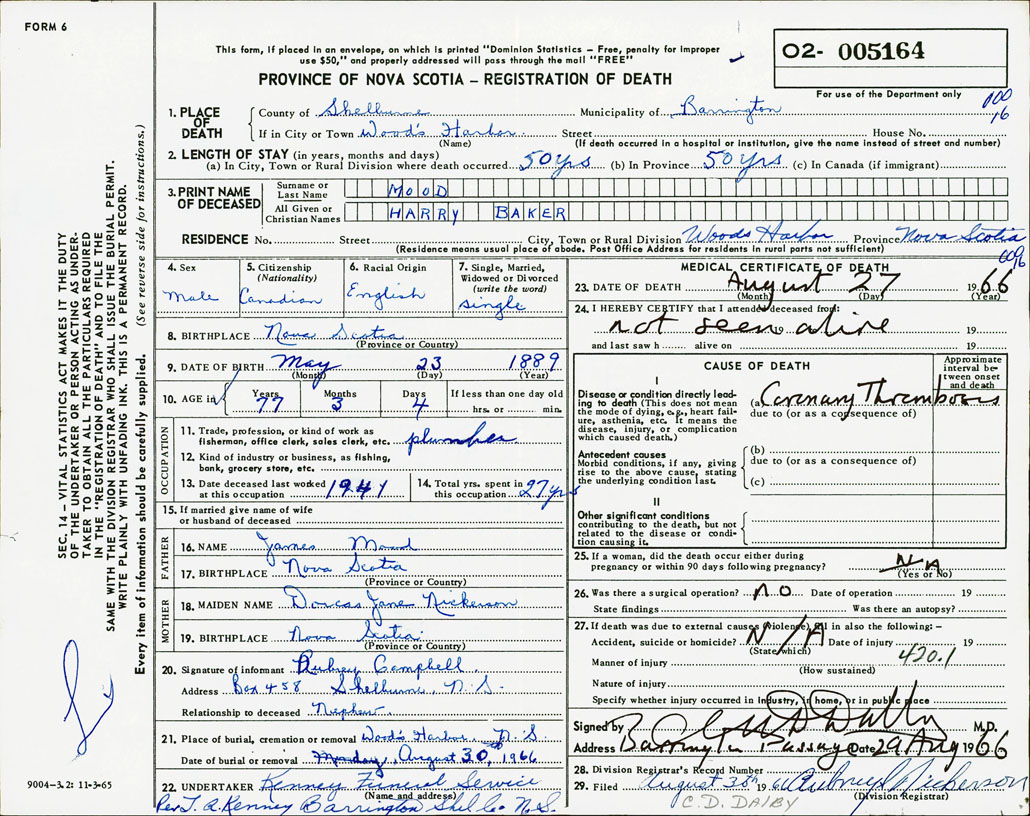 FORM 6
This form, if placed in an envelope, on which is printed "Dominion Statistics – Free, penalty for improper
use $50," and properly addressed will pass through the mail "FREE"
PROVINCE OF NOVA SCOTIA – REGISTRATION OF DEATH
02- 005164
For use of the Department only
100
16
1. PLACE OF DEATH
County of Shelburne Municipality of Barrington
If in City or Town Wood's Harbor Street House No.
(Name) (If death occurred in a hospital or institution, give the name instead of street and number)
2. LENGTH OF STAY (in years, months and days)
(a) In City, Town or Rural Division where death occurred 50 yrs (b) In Province 50 yrs (c) In Canada (if immigrant)
3. PRINT NAME OF DECEASED
Surname or Last Name MOOD
All Given or Christian Names HARRY BAKER
RESIDENCE No. Street City, Town or Rural Division Woods Harbor Province Nova Scotia
(Residence means usual place of abode. Post Office Address for residents in rural parts not sufficient)
4. Sex Male
5. Citizenship (Nationality) Canadian
6. Racial Origin English
7. Single, Married, Widowed or Divorced (write the word) single
8. BIRTHPLACE Nova Scotia
(Province or Country)
9. DATE OF BIRTH May 23 1889
(Month) (Day) (Year)
10. AGE in Years 77 Months 3 Days 4 If less than one day old hrs. or min.
OCCUPATION
11. Trade, profession, or kind of work as
fisherman, office clerk, sales clerk, etc. plumber
12. Kind of industry or business, as fishing,
bank, grocery store, etc.
13. Date deceased last worked at this occupation 1941
14. Total yrs. spent in this occupation 27 yrs
15. If married give name of wife
or husband of deceased
FATHER
16. NAME James Mood
17. BIRTHPLACE Nova Scotia
(Province or Country)
MOTHER
18. MAIDEN NAME Dorcas Jane Nickerson
19. BIRTHPLACE Nova Scotia
(Province or Country)
20. Signature of informant Aubrey Campbell
Address Box 458 Shelburne, N.S.
Relationship to deceased Nephew
21. Place of burial, cremation or removal Wood's Harbor, N.S
Date of burial or removal Monday, August 30th, 1966
22. UNDERTAKER Kenney Funeral Service
(Name and address)
Rev T. A. Kenney Barrington Shel Co. N.S.
MEDICAL CERTIFICATE OF DEATH
23. DATE OF DEATH August 27 1966
(Month) (Day) (Year)
24. I HEREBY CERTIFY that I attended deceased from:
not seen alive 19
19
and last saw h alive on 19
CAUSE OF DEATH
Approximate interval between onset and death
I
Disease or condition directly leading to death (This does not mean the mode of dying, e.g., heart failure, asthenia, etc. It means the disease, injury, or complication which caused death.)
(a) Coronary Thrombosis
due to (or as a consequence of)
Antecedent causes
Morbid conditions, if any, giving rise to the above cause, stating the underlying condition last.
(b)
due to (or as a consequence of)
(c)
II
Other significant conditions
contributing to the death, but not related to the disease or condition causing it.
25. If a woman, did the death occur either during
pregnancy or within 90 days following pregnancy? N A
(Yes or No)
26. Was there a surgical operation? NO Date of operation 19
State findings Was there an autopsy?
27. If death was due to external causes (violence) fill in also the following:–
Accident, suicide or homicide? N/A Date of injury 19
(State which) 420.1
Manner of injury
(How sustained)
Nature of injury
Specify whether injury occurred in industry, in home, or in public place
Signed by Dally M.D.
Address Barrington Passage Date 29 Aug 1966
28. Division Registrar's Record Number
29. Filed August 30th 1966 Aubrey Nickerson
(Division Registrar)
C.D. DALBY
SEC. 14 – VITAL STATISTICS ACT MAKES IT THE DUTY
OF THE UNDERTAKER OR PERSON ACTING AS UNDERTAKER TO OBTAIN ALL THE PARTICULARS REQUIRED
IN THE "REGISTRATION OF DEATH" AND TO FILE THE
SAME WITH THE DIVISION REGISTRAR WHO SHALL ISSUE THE BURIAL PERMIT.
WRITE PLAINLY WITH UNFADING INK. THIS IS A PERMANENT RECORD.
Every item of information should be carefully supplied. (See reverse side for instructions.)
9004-3.2: 11-3-65